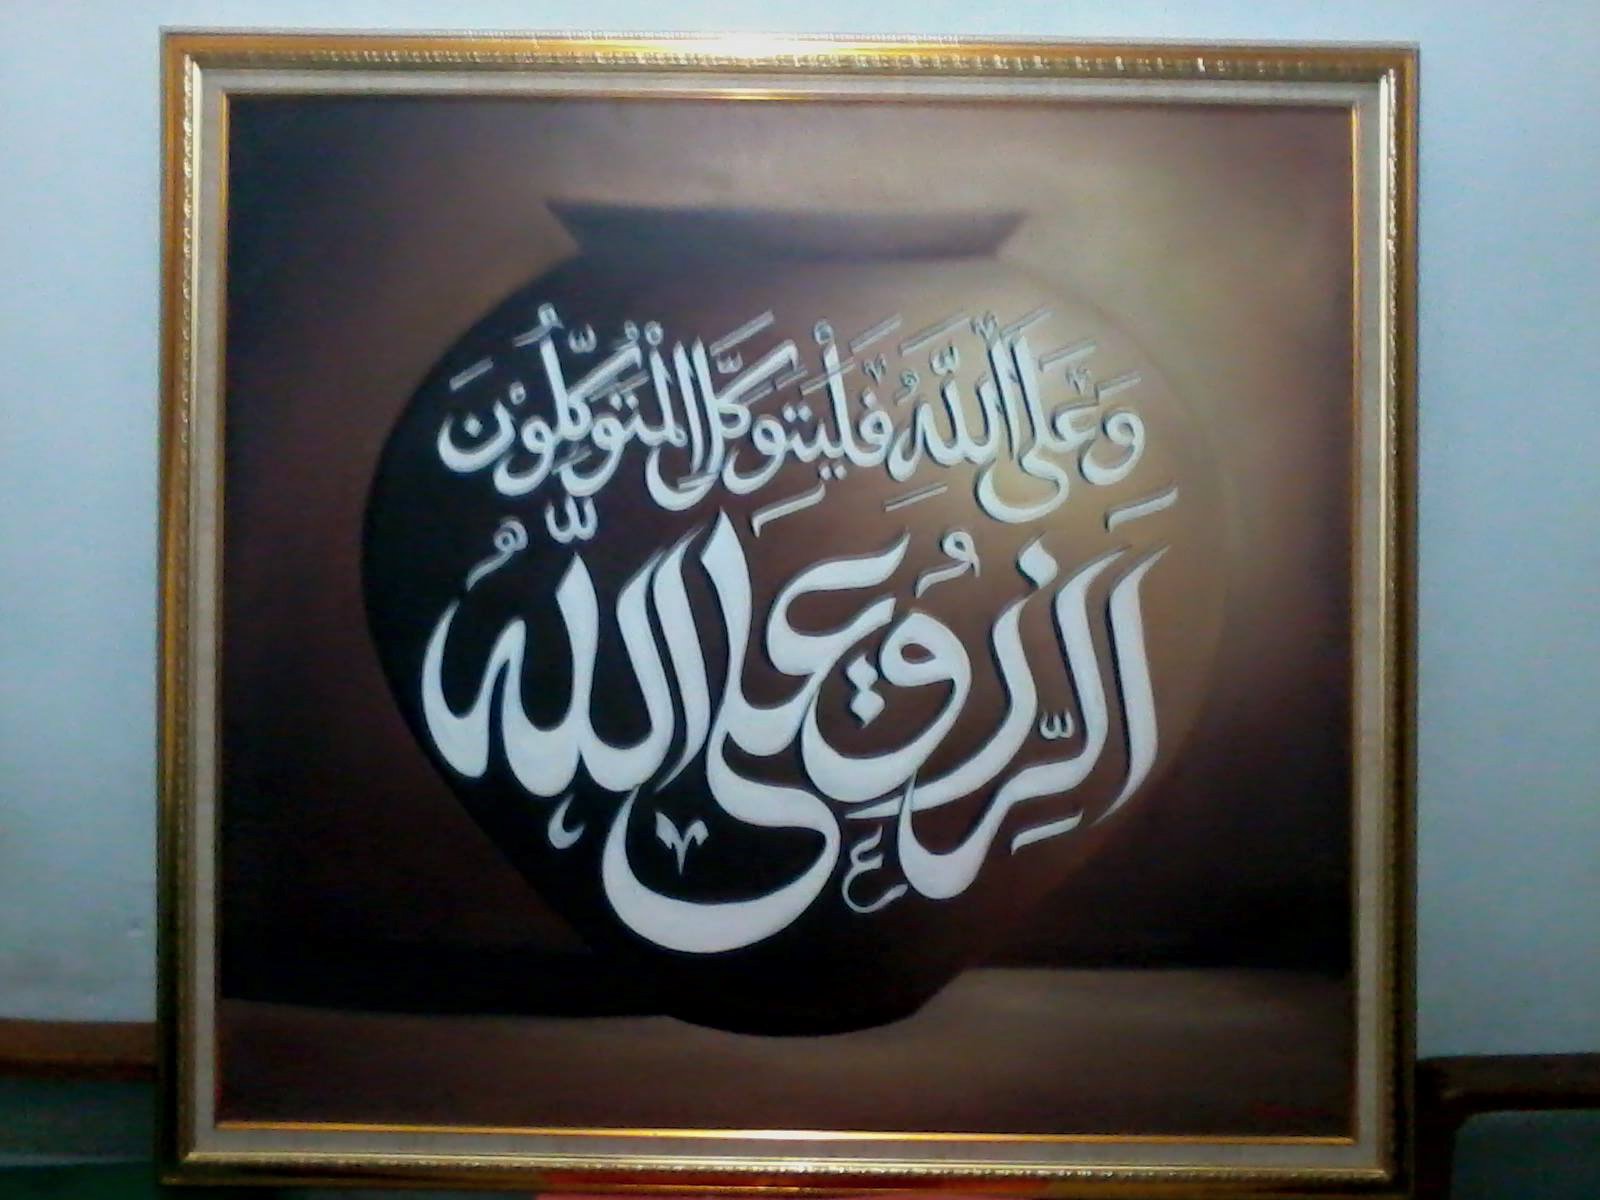 وَعَلَى اللّٰهِ فَلْيَتَوَكَّلِ الْمُتَوَكِّلُوْنَ
اَلرِّزْقُ عَلَى اللّٰهُ